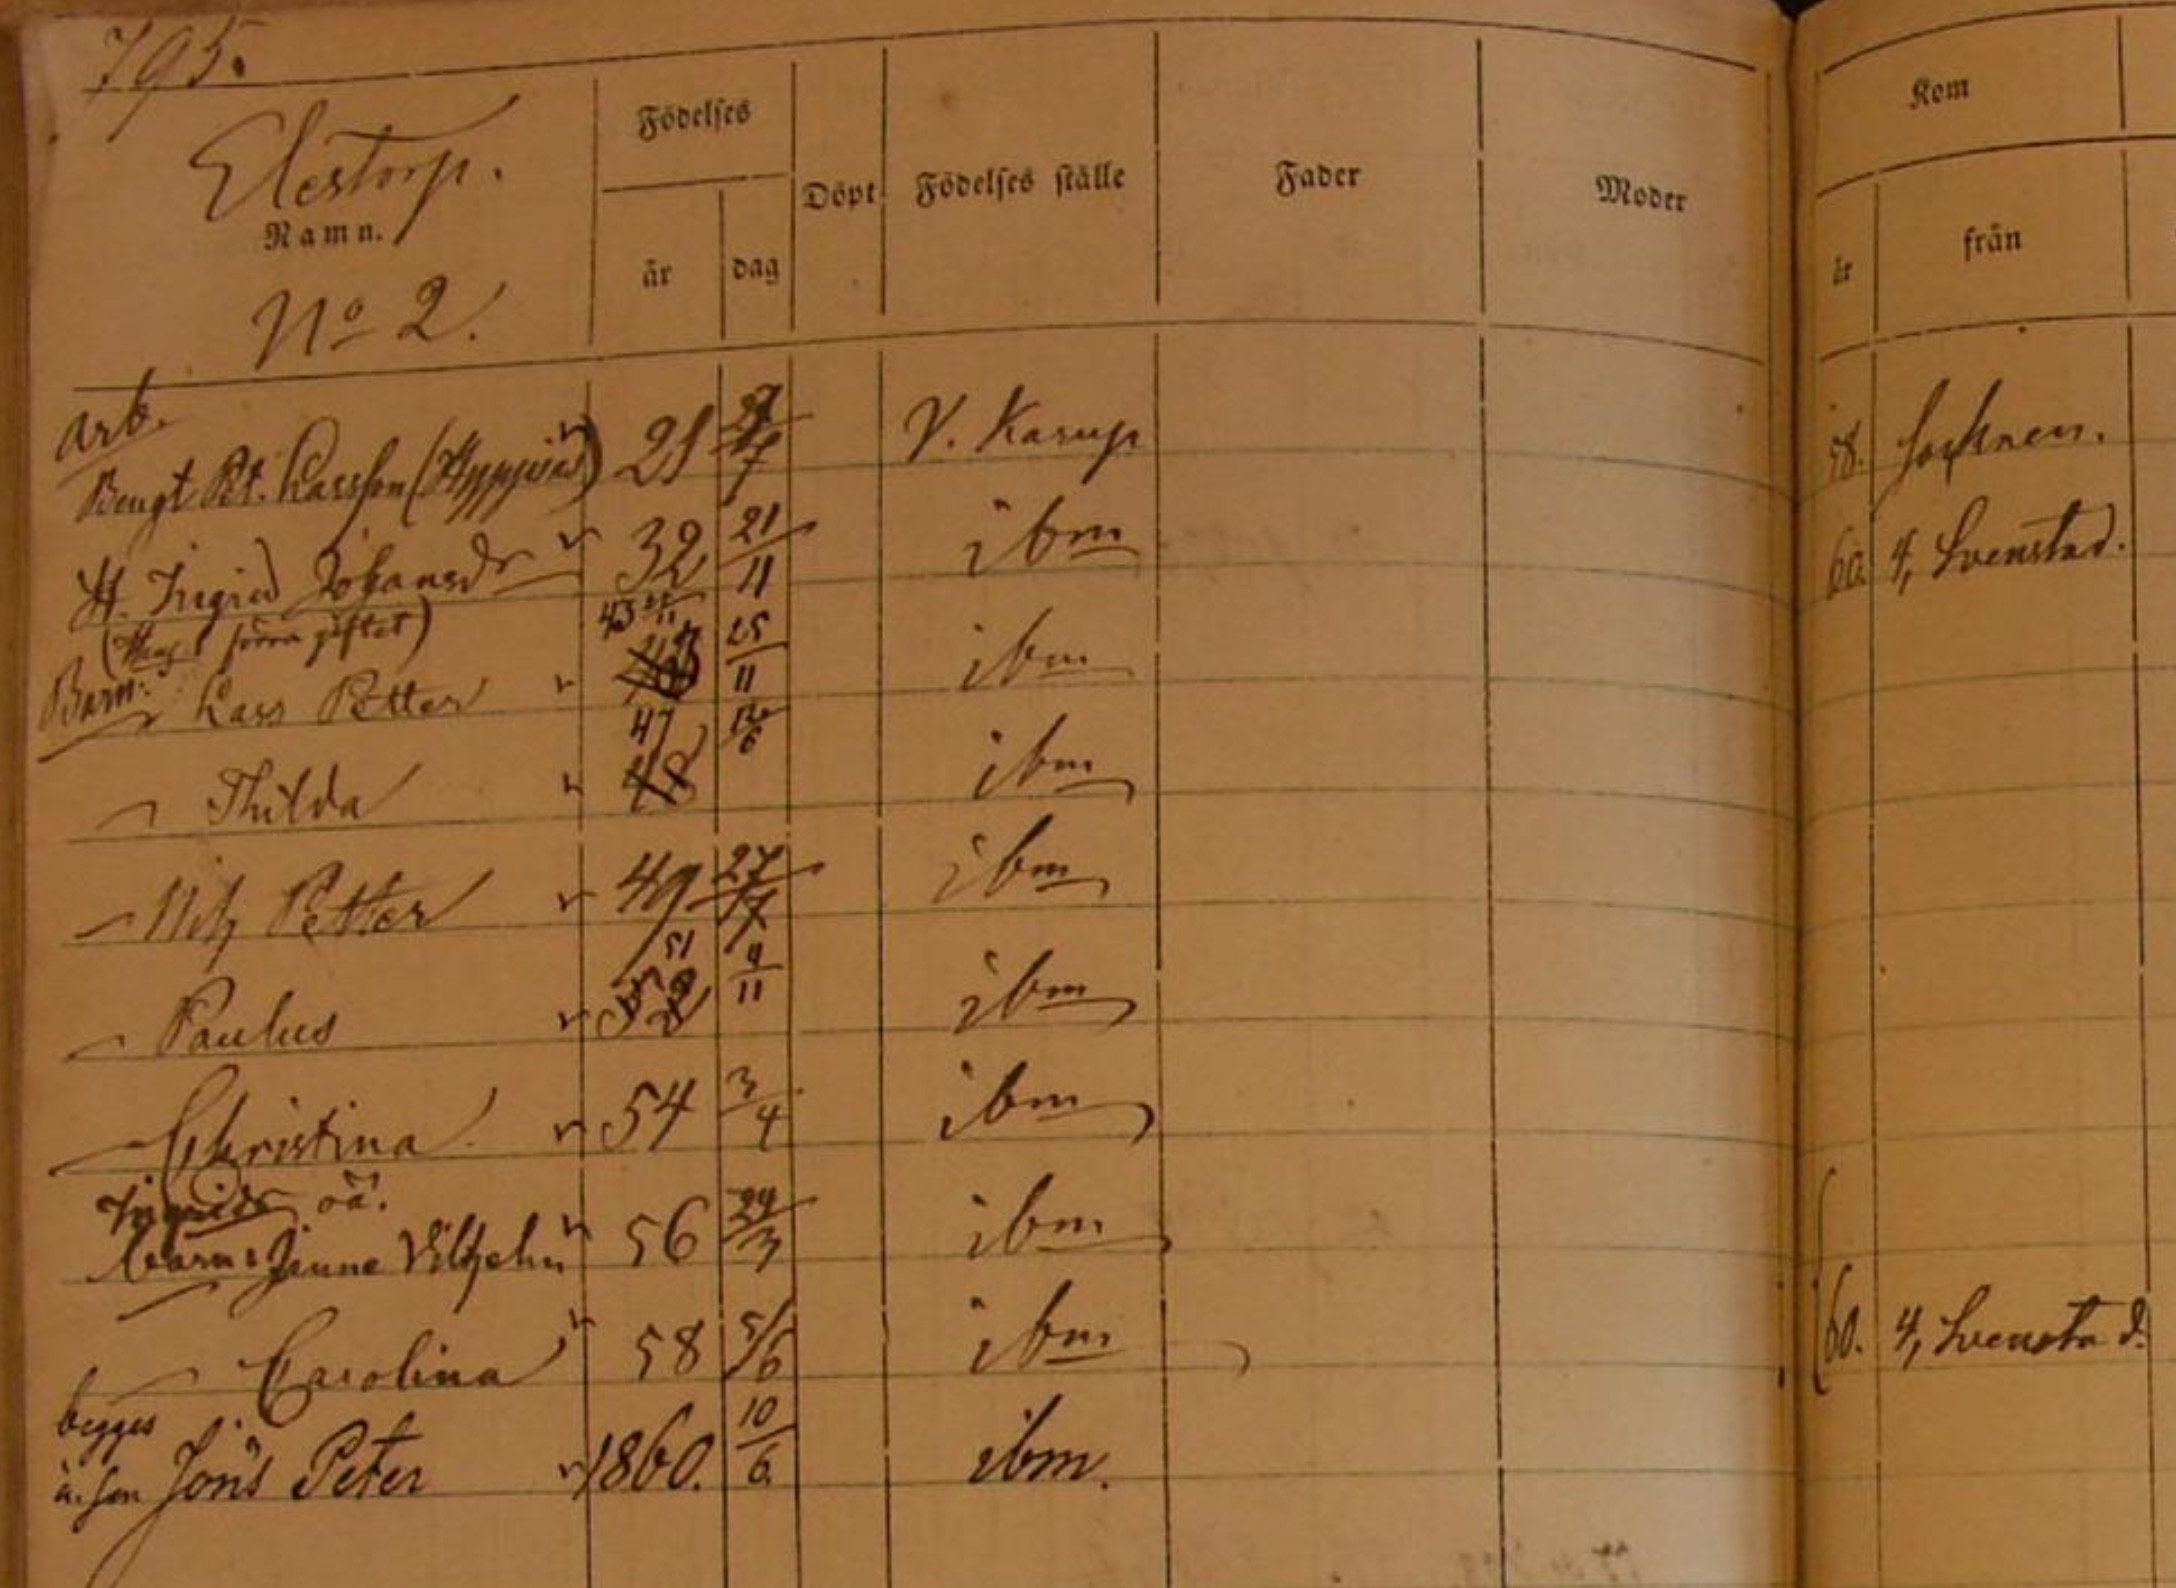 795.
Elestorp.
Namn.
No 2.
Födelses
år
dag
Döpt
Födelses ställe
Fader
Moder
Kom
år
från
arb.
Bengt Pet. Larsson 21 V. Karup 58. Socknen.
H. Ingrid Johansdr 32 21/11 ibm 60. 4, Svenstad.
(Hans förra giftet) 43
Barn: Lars Petter 25/11 ibm
47 12/6
Thilda 48 ibm
Nils Petter 49 27/7 ibm
51 4/11
Paulus 52 ibm
Christina 54 3/4 ibm
Ingrids oä.
barn: Janne Vilhelm 56 24/3 ibm
Carolina 58 5/6 ibm 60. 4, Svenstad.
begges
ä. son Jöns Peter 1860. 10/6 ibm.